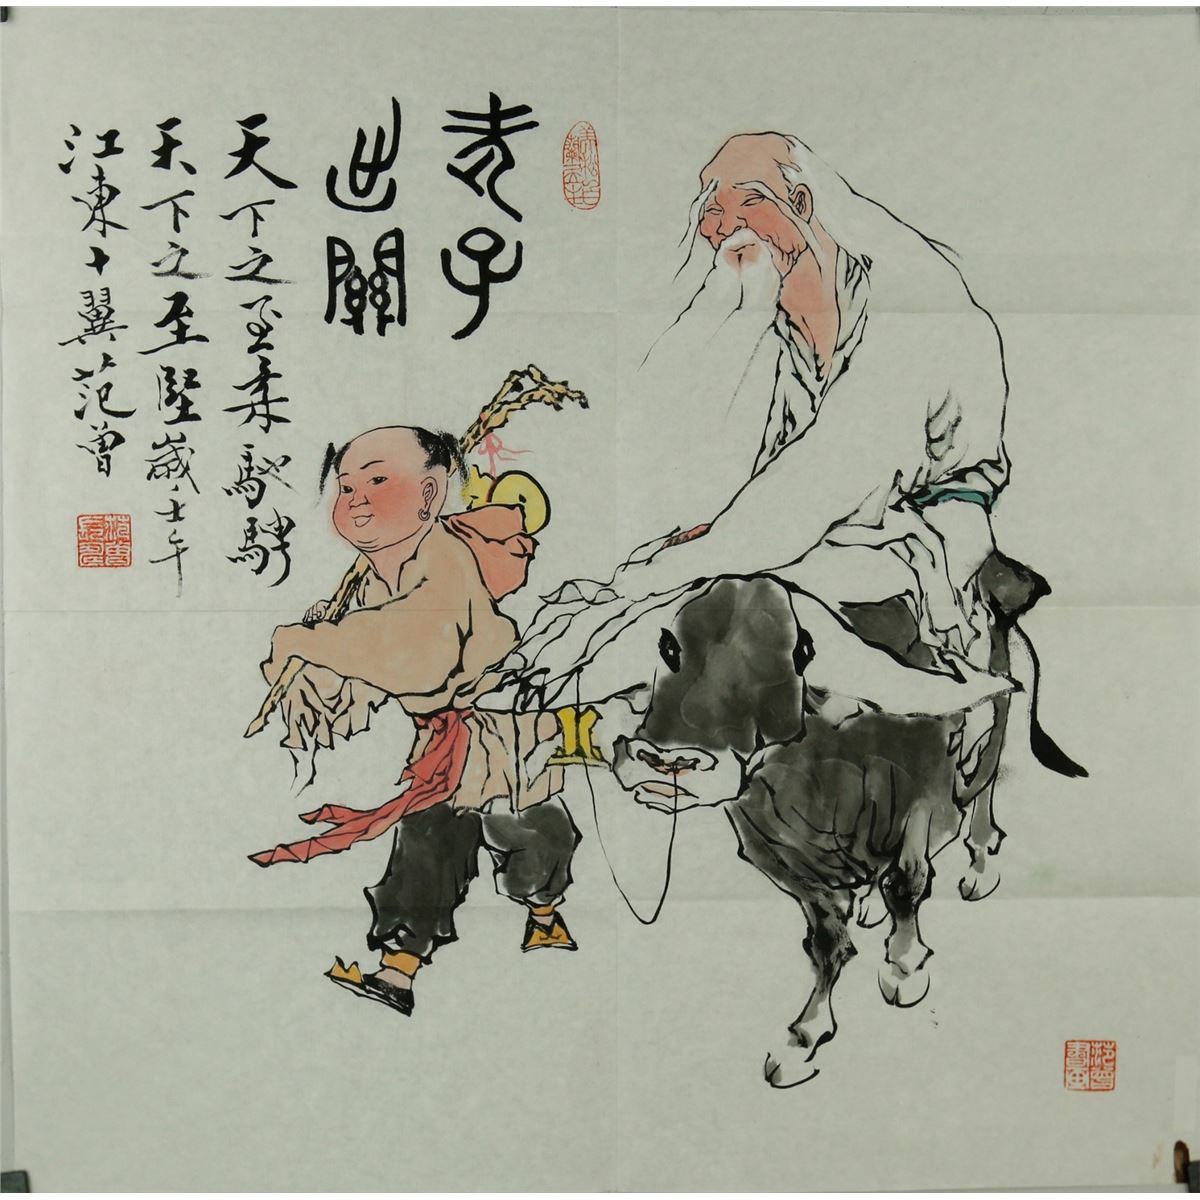 老子
出關
天下之至柔馳騁
天下之至堅歲壬午
江東十翼范曾
范曾